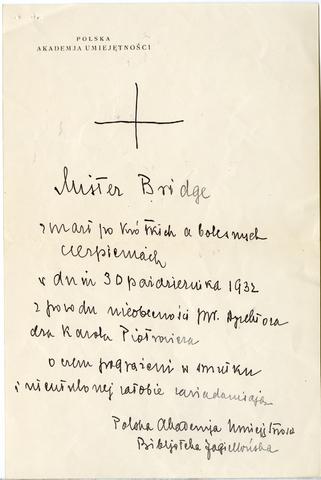 POLSKA
AKADEMJA UMIEJĘTNOŚCI
Mister Bridge
zmarł po krótkich a bolesnych
cierpieniach
w dniu 30 października 1932
z powodu nieobecności pp.
dra Karola Piotrowicza
o czem pogrążeni w smutku
i nieutulonej żałobie zawiadamiają
Polska Akademja Umiejętności
Bibljoteka Jagiellońska